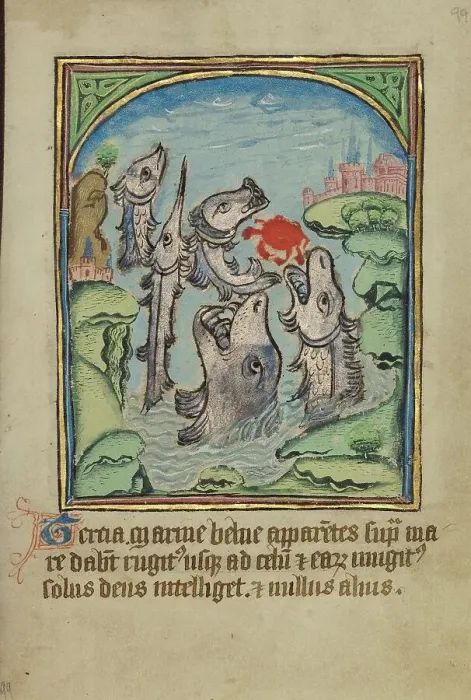 Tercia. Marine belue apparētes suꝑ ma
re dabūt rugitꝰ usqꝫ ad celū ⁊ eaꝝ mugitꝰ
solus deus intelliget. ⁊ nullus alius.